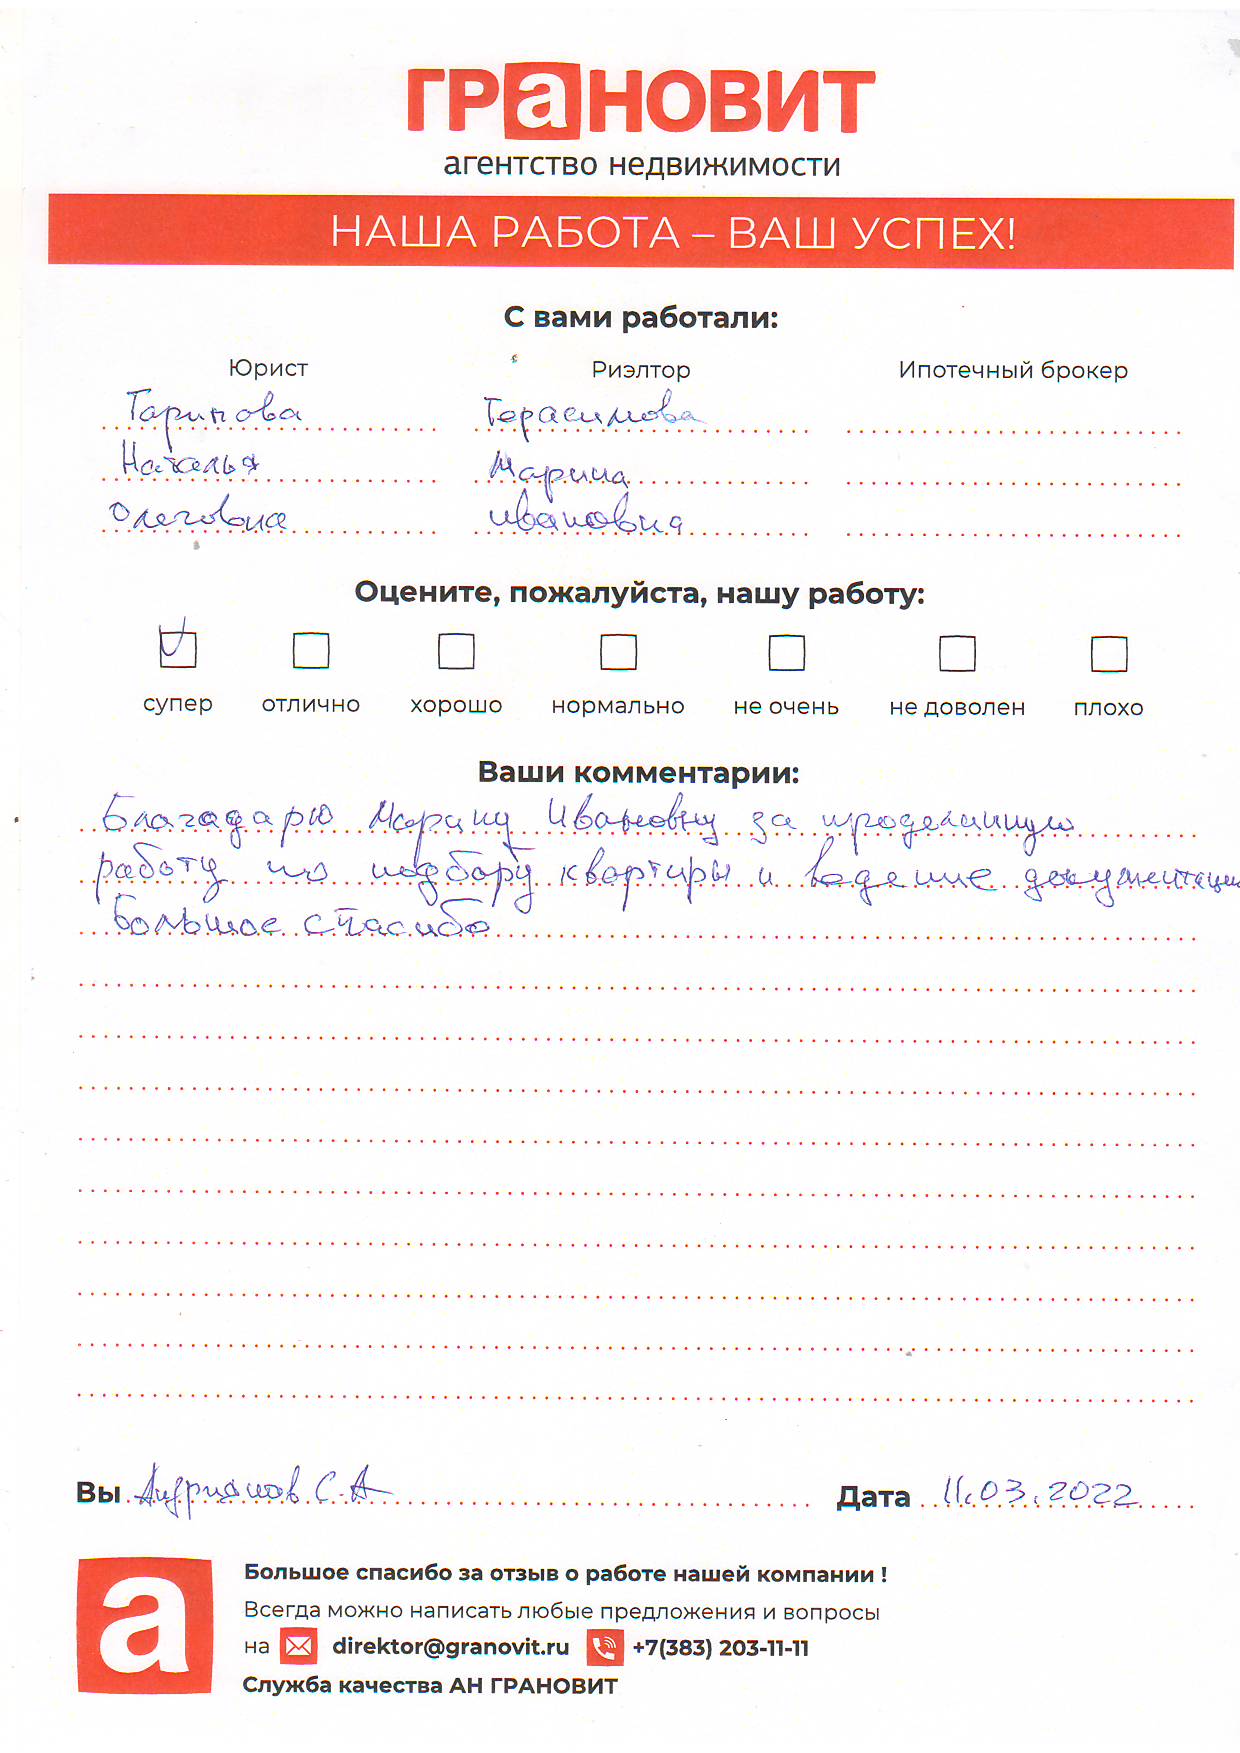 ГРаНОВИТ
агентство недвижимости
НАША РАБОТА – ВАШ УСПЕХ!
С вами работали:
Юрист Риэлтор Ипотечный брокер
Гарипова Герасимова
Наталья Марина
Олеговна Ивановна
Оцените, пожалуйста, нашу работу:
супер отлично хорошо нормально не очень не доволен плохо
Ваши комментарии:
Благадарю Марину Ивановну за проделанную
работу по подбору квартиры и ведение документации
Большое спасибо
Вы Андрианов С.А Дата 11.03.2022
а
Большое спасибо за отзыв о работе нашей компании !
Всегда можно написать любые предложения и вопросы
на direktor@granovit.ru +7(383) 203-11-11
Служба качества АН ГРАНОВИТ